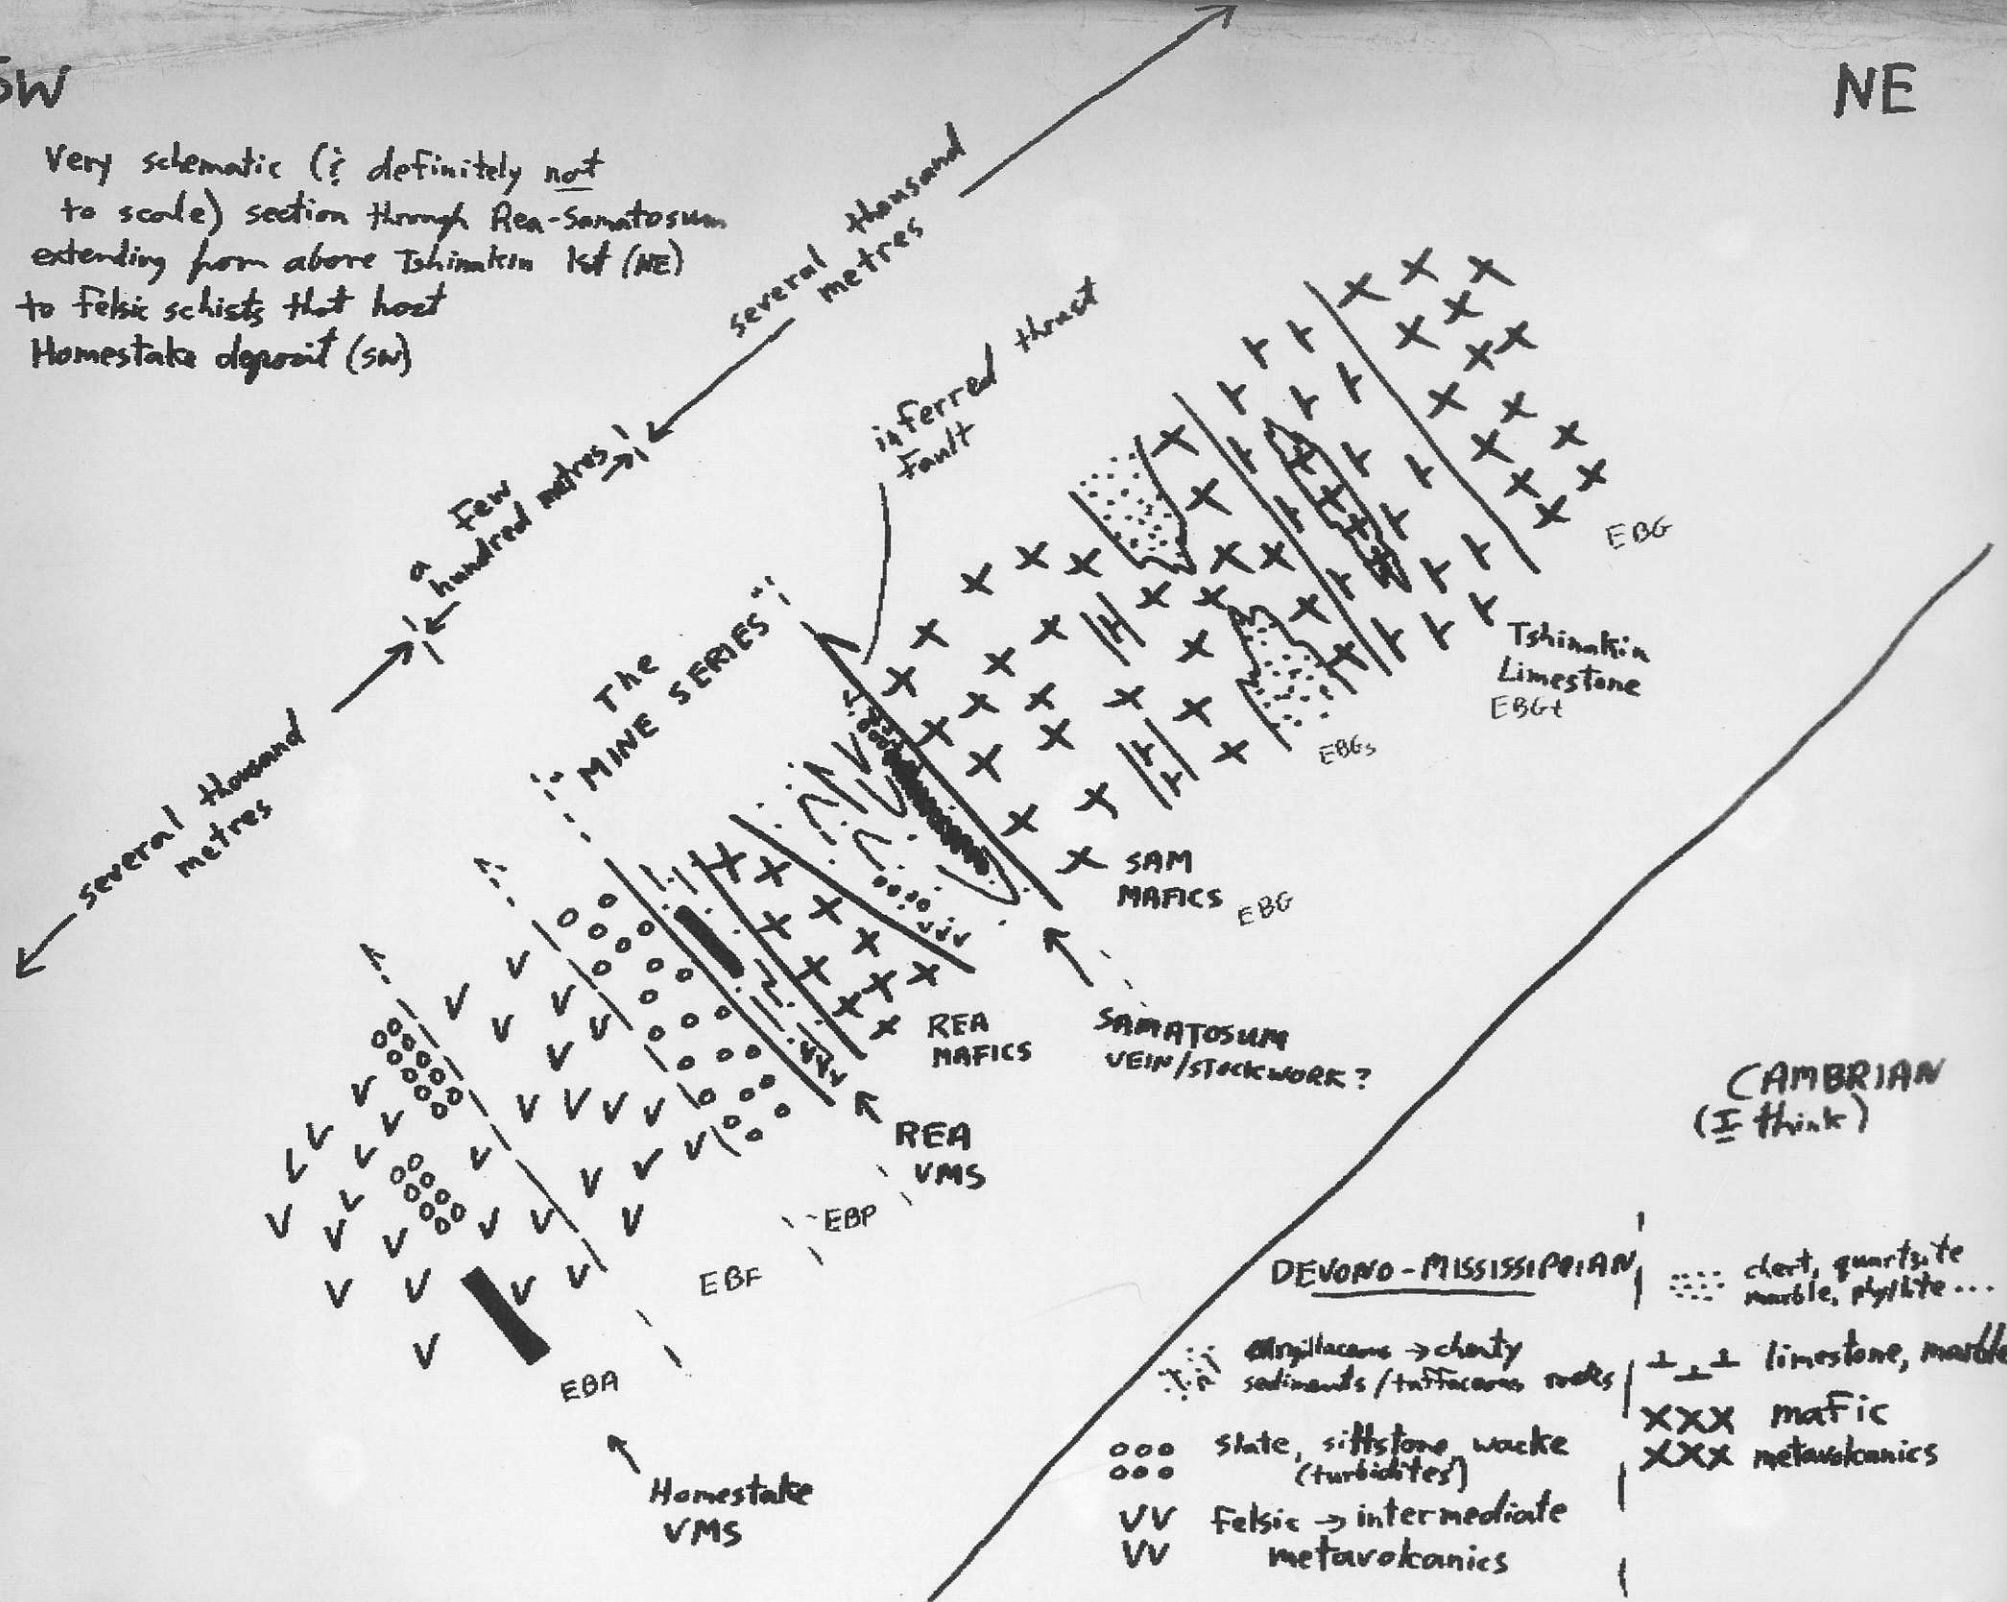 SW
NE
Very schematic (& definitely not
to scale) section through Rea-Samatosum
extending from above Tshinakin lst (NE)
to felsic schists that host
Homestake deposit (SW)
several thousand
metres
a few
hundred metres
several thousand
metres
inferred thrust
fault
"The
MINE SERIES"
EBG
Tshinakin
Limestone
EBGt
EBGs
SAM
MAFICS EBG
SAMATOSUM
VEIN/STOCKWORK?
REA
MAFICS
REA
VMS
EBP
EBF
EBA
Homestake
VMS
CAMBRIAN
(I think)
DEVONO-MISSISSIPPIAN
chert, quartzite
marble, phyllite...
argillaceous → cherty
sediments/tuffaceous rocks
limestone, marble
slate, siltstone, wacke
(turbidites)
XXX mafic
XXX metavolcanics
VV felsic → intermediate
VV metavolcanics